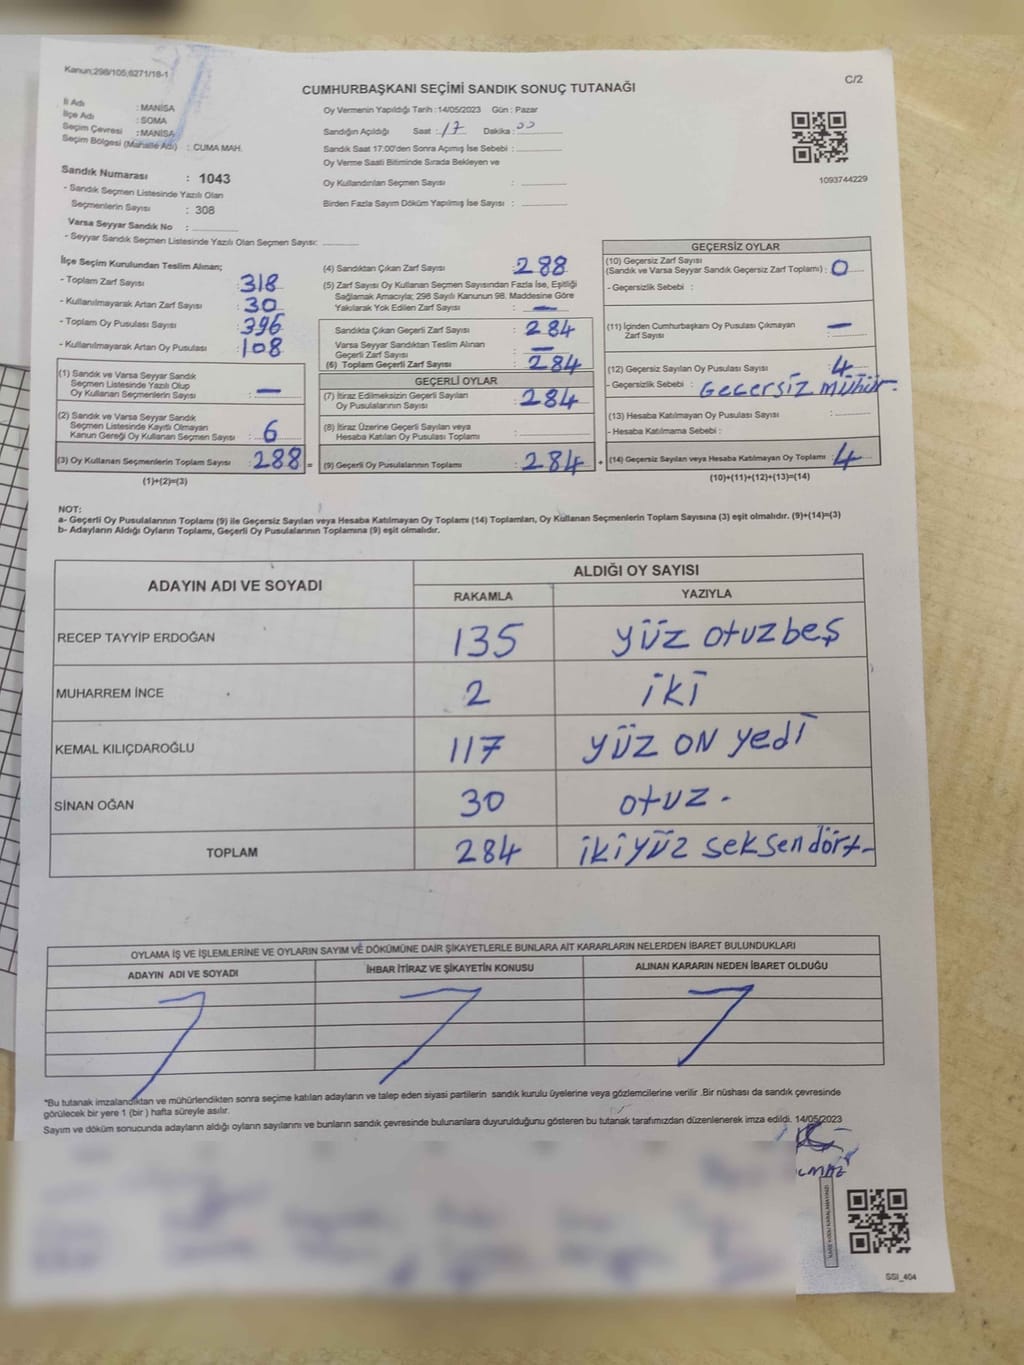 Kanun;298/105;6271/18-1
C/2
CUMHURBAŞKANI SEÇİMİ SANDIK SONUÇ TUTANAĞI
İl Adı : MANİSA
İlçe Adı : SOMA
Seçim Çevresi : MANİSA
Seçim Bölgesi (Mahalle Adı) : CUMA MAH.
Sandık Numarası : 1043
- Sandık Seçmen Listesinde Yazılı Olan
Seçmenlerin Sayısı : 308
Varsa Seyyar Sandık No :
- Seyyar Sandık Seçmen Listesinde Yazılı Olan Seçmen Sayısı:
Oy Vermenin Yapıldığı Tarih :14/05/2023 Gün : Pazar
Sandığın Açıldığı Saat : 17 Dakika : 00
Sandık Saat 17:00'den Sonra Açımış İse Sebebi :
Oy Verme Saati Bitiminde Sırada Bekleyen ve
Oy Kullandırılan Seçmen Sayısı :
Birden Fazla Sayım Döküm Yapılmış İse Sayısı :
1093744229
İlçe Seçim Kurulundan Teslim Alınan;
- Toplam Zarf Sayısı : 318
- Kullanılmayarak Artan Zarf Sayısı : 30
- Toplam Oy Pusulası Sayısı : 396
- Kullanılmayarak Artan Oy Pusulası : 108
(1) Sandık ve Varsa Seyyar Sandık
Seçmen Listesinde Yazılı Olup
Oy Kullanan Seçmenlerin Sayısı : —
(2) Sandık ve Varsa Seyyar Sandık
Seçmen Listesinde Kayıtlı Olmayan
Kanun Gereği Oy Kullanan Seçmen Sayısı : 6
(3) Oy Kullanan Seçmenlerin Toplam Sayısı : 288 =
(1)+(2)=(3)
(4) Sandıktan Çıkan Zarf Sayısı : 288
(5) Zarf Sayısı Oy Kullanan Seçmen Sayısından Fazla İse, Eşitliği
Sağlamak Amacıyla; 298 Sayılı Kanunun 98. Maddesine Göre
Yakılarak Yok Edilen Zarf Sayısı : —
Sandıkta Çıkan Geçerli Zarf Sayısı : 284
Varsa Seyyar Sandıktan Teslim Alınan
Geçerli Zarf Sayısı : —
(6) Toplam Geçerli Zarf Sayısı : 284
GEÇERLİ OYLAR
(7) İtiraz Edilmeksizin Geçerli Sayılan
Oy Pusulalarının Sayısı : 284
(8) İtiraz Üzerine Geçerli Sayılan veya
Hesaba Katılan Oy Pusulası Toplamı :
(9) Geçerli Oy Pusulalarının Toplamı : 284 +
GEÇERSİZ OYLAR
(10) Geçersiz Zarf Sayısı
(Sandık ve Varsa Seyyar Sandık Geçersiz Zarf Toplamı) : 0
- Geçersizlik Sebebi :
(11) İçinden Cumhurbaşkanı Oy Pusulası Çıkmayan
Zarf Sayısı : —
(12) Geçersiz Sayılan Oy Pusulası Sayısı : 4
- Geçersizlik Sebebi : Gecersiz mühür.
(13) Hesaba Katılmayan Oy Pusulası Sayısı :
- Hesaba Katılmama Sebebi :
(14) Geçersiz Sayılan veya Hesaba Katılmayan Oy Toplamı : 4
(10)+(11)+(12)+(13)=(14)
NOT:
a- Geçerli Oy Pusulalarının Toplamı (9) ile Geçersiz Sayılan veya Hesaba Katılmayan Oy Toplamı (14) Toplamları, Oy Kullanan Seçmenlerin Toplam Sayısına (3) eşit olmalıdır. (9)+(14)=(3)
b- Adayların Aldığı Oyların Toplamı, Geçerli Oy Pusulalarının Toplamına (9) eşit olmalıdır.
ADAYIN ADI VE SOYADI ALDIĞI OY SAYISI
RAKAMLA YAZIYLA
RECEP TAYYİP ERDOĞAN 135 yüz otuzbeş
MUHARREM İNCE 2 iki
KEMAL KILIÇDAROĞLU 117 yüz on yedi
SİNAN OĞAN 30 otuz.
TOPLAM 284 ikiyüz seksendört
OYLAMA İŞ VE İŞLEMLERİNE VE OYLARIN SAYIM VE DÖKÜMÜNE DAİR ŞİKAYETLERLE BUNLARA AİT KARARLARIN NELERDEN İBARET BULUNDUKLARI
ADAYIN ADI VE SOYADI İHBAR İTİRAZ VE ŞİKAYETİN KONUSU ALINAN KARARIN NEDEN İBARET OLDUĞU
*Bu tutanak imzalandıktan ve mühürlendikten sonra seçime katılan adayların ve talep eden siyasi partilerin sandık kurulu üyelerine veya gözlemcilerine verilir .Bir nüshası da sandık çevresinde
görülecek bir yere 1 (bir ) hafta süreyle asılır.
Sayım ve döküm sonucunda adayların aldığı oyların sayılarını ve bunların sandık çevresinde bulunanlara duyurulduğunu gösteren bu tutanak tarafımızdan düzenlenerek imza edildi. 14/05/2023
SSI_404